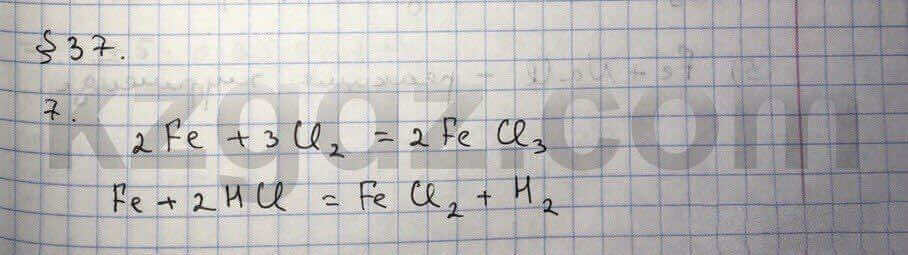 § 37.
7.
2 Fe + 3 Cl₂ = 2 Fe Cl₃
Fe + 2 HCl = Fe Cl₂ + H₂
kzgdz.com